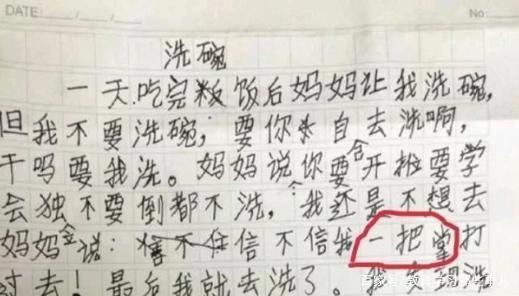 DATE: / / No:
洗碗
一天吃完粄饭后妈妈让我洗碗,
但我不要洗碗,要你自去洗啊,
干吗要我洗。妈妈说你要合开班要学
会独不要倒都不洗,我还是不想去
妈妈会说:信不信我一把掌打
过去!最后我就去洗了。我